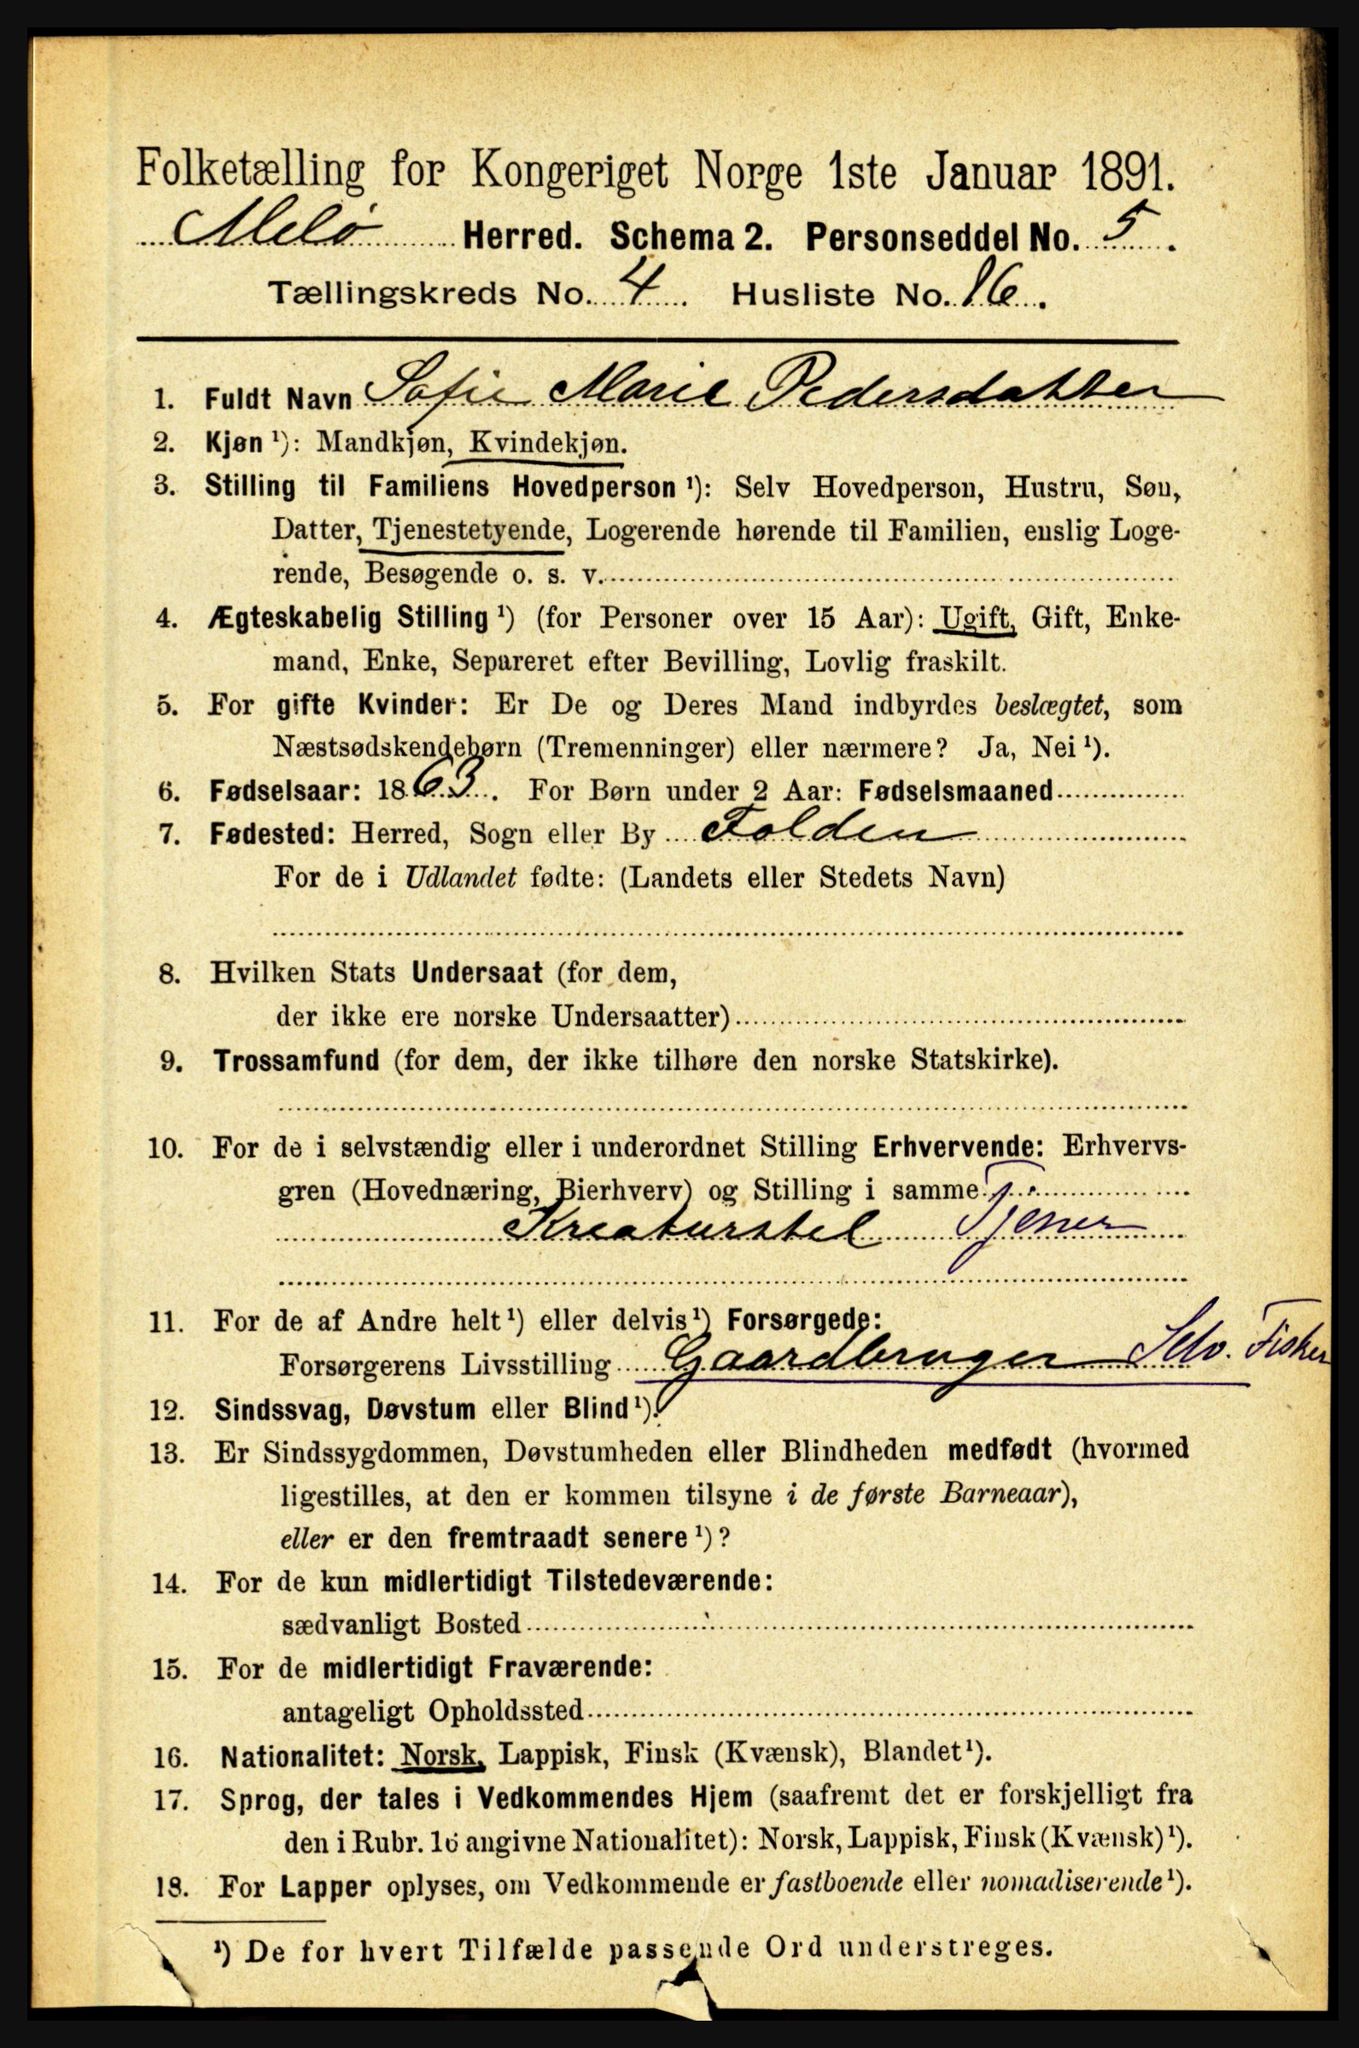 Folketælling for Kongeriget Norge 1ste Januar 1891.
Melö Herred. Schema 2. Personseddel No. 5.
Tællingskreds No. 4. Husliste No. 16.
1. Fuldt Navn Sofie Marie Pedersdatter
2. Kjøn ¹): Mandkjøn, Kvindekjøn.
3. Stilling til Familiens Hovedperson ¹): Selv Hovedperson, Hustru, Søn,
Datter, Tjenestetyende, Logerende hørende til Familien, enslig Loge-
rende, Besøgende o. s. v.
4. Ægteskabelig Stilling ¹) (for Personer over 15 Aar): Ugift, Gift, Enke-
mand, Enke, Separeret efter Bevilling, Lovlig fraskilt.
5. For gifte Kvinder: Er De og Deres Mand indbyrdes beslægtet, som
Næstsødskendebørn (Tremenninger) eller nærmere? Ja, Nei ¹).
6. Fødselsaar: 1863. For Børn under 2 Aar: Fødselsmaaned
7. Fødested: Herred, Sogn eller By Folden
For de i Udlandet fødte: (Landets eller Stedets Navn)
8. Hvilken Stats Undersaat (for dem,
der ikke ere norske Undersaatter)
9. Trossamfund (for dem, der ikke tilhøre den norske Statskirke).
10. For de i selvstændig eller i underordnet Stilling Erhvervende: Erhvervs-
gren (Hovednæring, Bierhverv) og Stilling i samme
Kreaturstel Tjener
11. For de af Andre helt ¹) eller delvis ¹) Forsørgede:
Forsørgerens Livsstilling Gaardbruger Selv. Fisker
12. Sindssvag, Døvstum eller Blind ¹).
13. Er Sindssygdommen, Døvstumheden eller Blindheden medfødt (hvormed
ligestilles, at den er kommen tilsyne i de første Barneaar),
eller er den fremtraadt senere ¹)?
14. For de kun midlertidigt Tilstedeværende:
sædvanligt Bosted
15. For de midlertidigt Fraværende:
antageligt Opholdssted
16. Nationalitet: Norsk, Lappisk, Finsk (Kvænsk), Blandet ¹).
17. Sprog, der tales i Vedkommendes Hjem (saafremt det er forskjelligt fra
den i Rubr. 16 angivne Nationalitet): Norsk, Lappisk, Finsk (Kvænsk) ¹).
18. For Lapper oplyses, om Vedkommende er fastboende eller nomadiserende ¹).
¹) De for hvert Tilfælde passende Ord understreges.